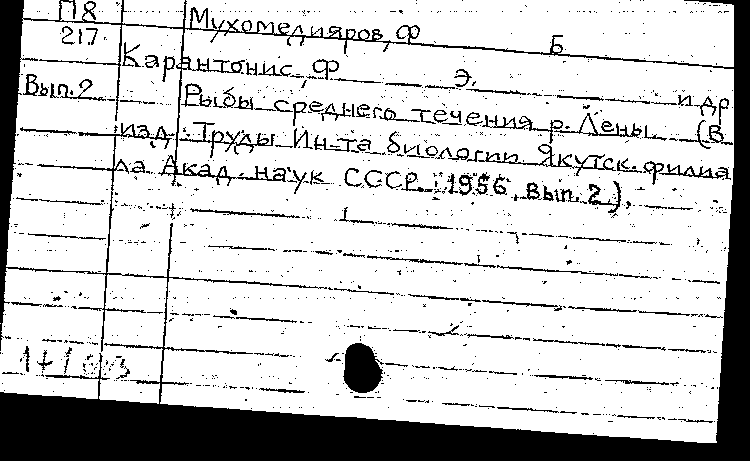 П8 Мухомедияров, Ф Б
217 Карантонис, Ф Э. и др
Вып. 2 Рыбы среднего течения р. Лены. (В
изд: Труды Ин-та биологии Якутск. филиа
ла Акад. наук СССР. 1956, вып. 2).
1+1